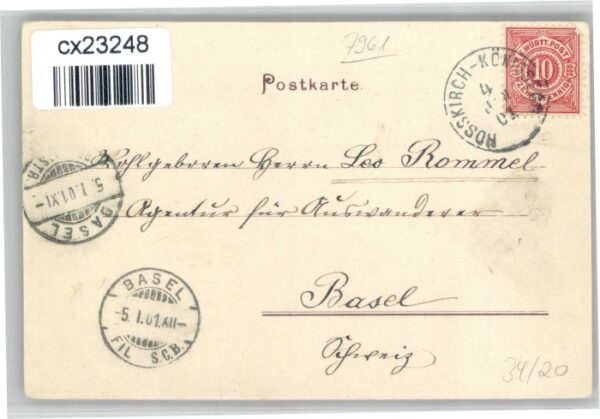 cx23248
7961
Postkarte.
K. WÜRTT. POST
10
ROSSKIRCH-KÖNIGSEGG
4
01
Wohlgeboren Herrn Leo Rommel
Agentur für Auswanderer
Basel
Schweiz
BASEL
5.I.01.XI-
STR.
BASEL
-5.I.01.XII-
FIL S.C.B.
34/20